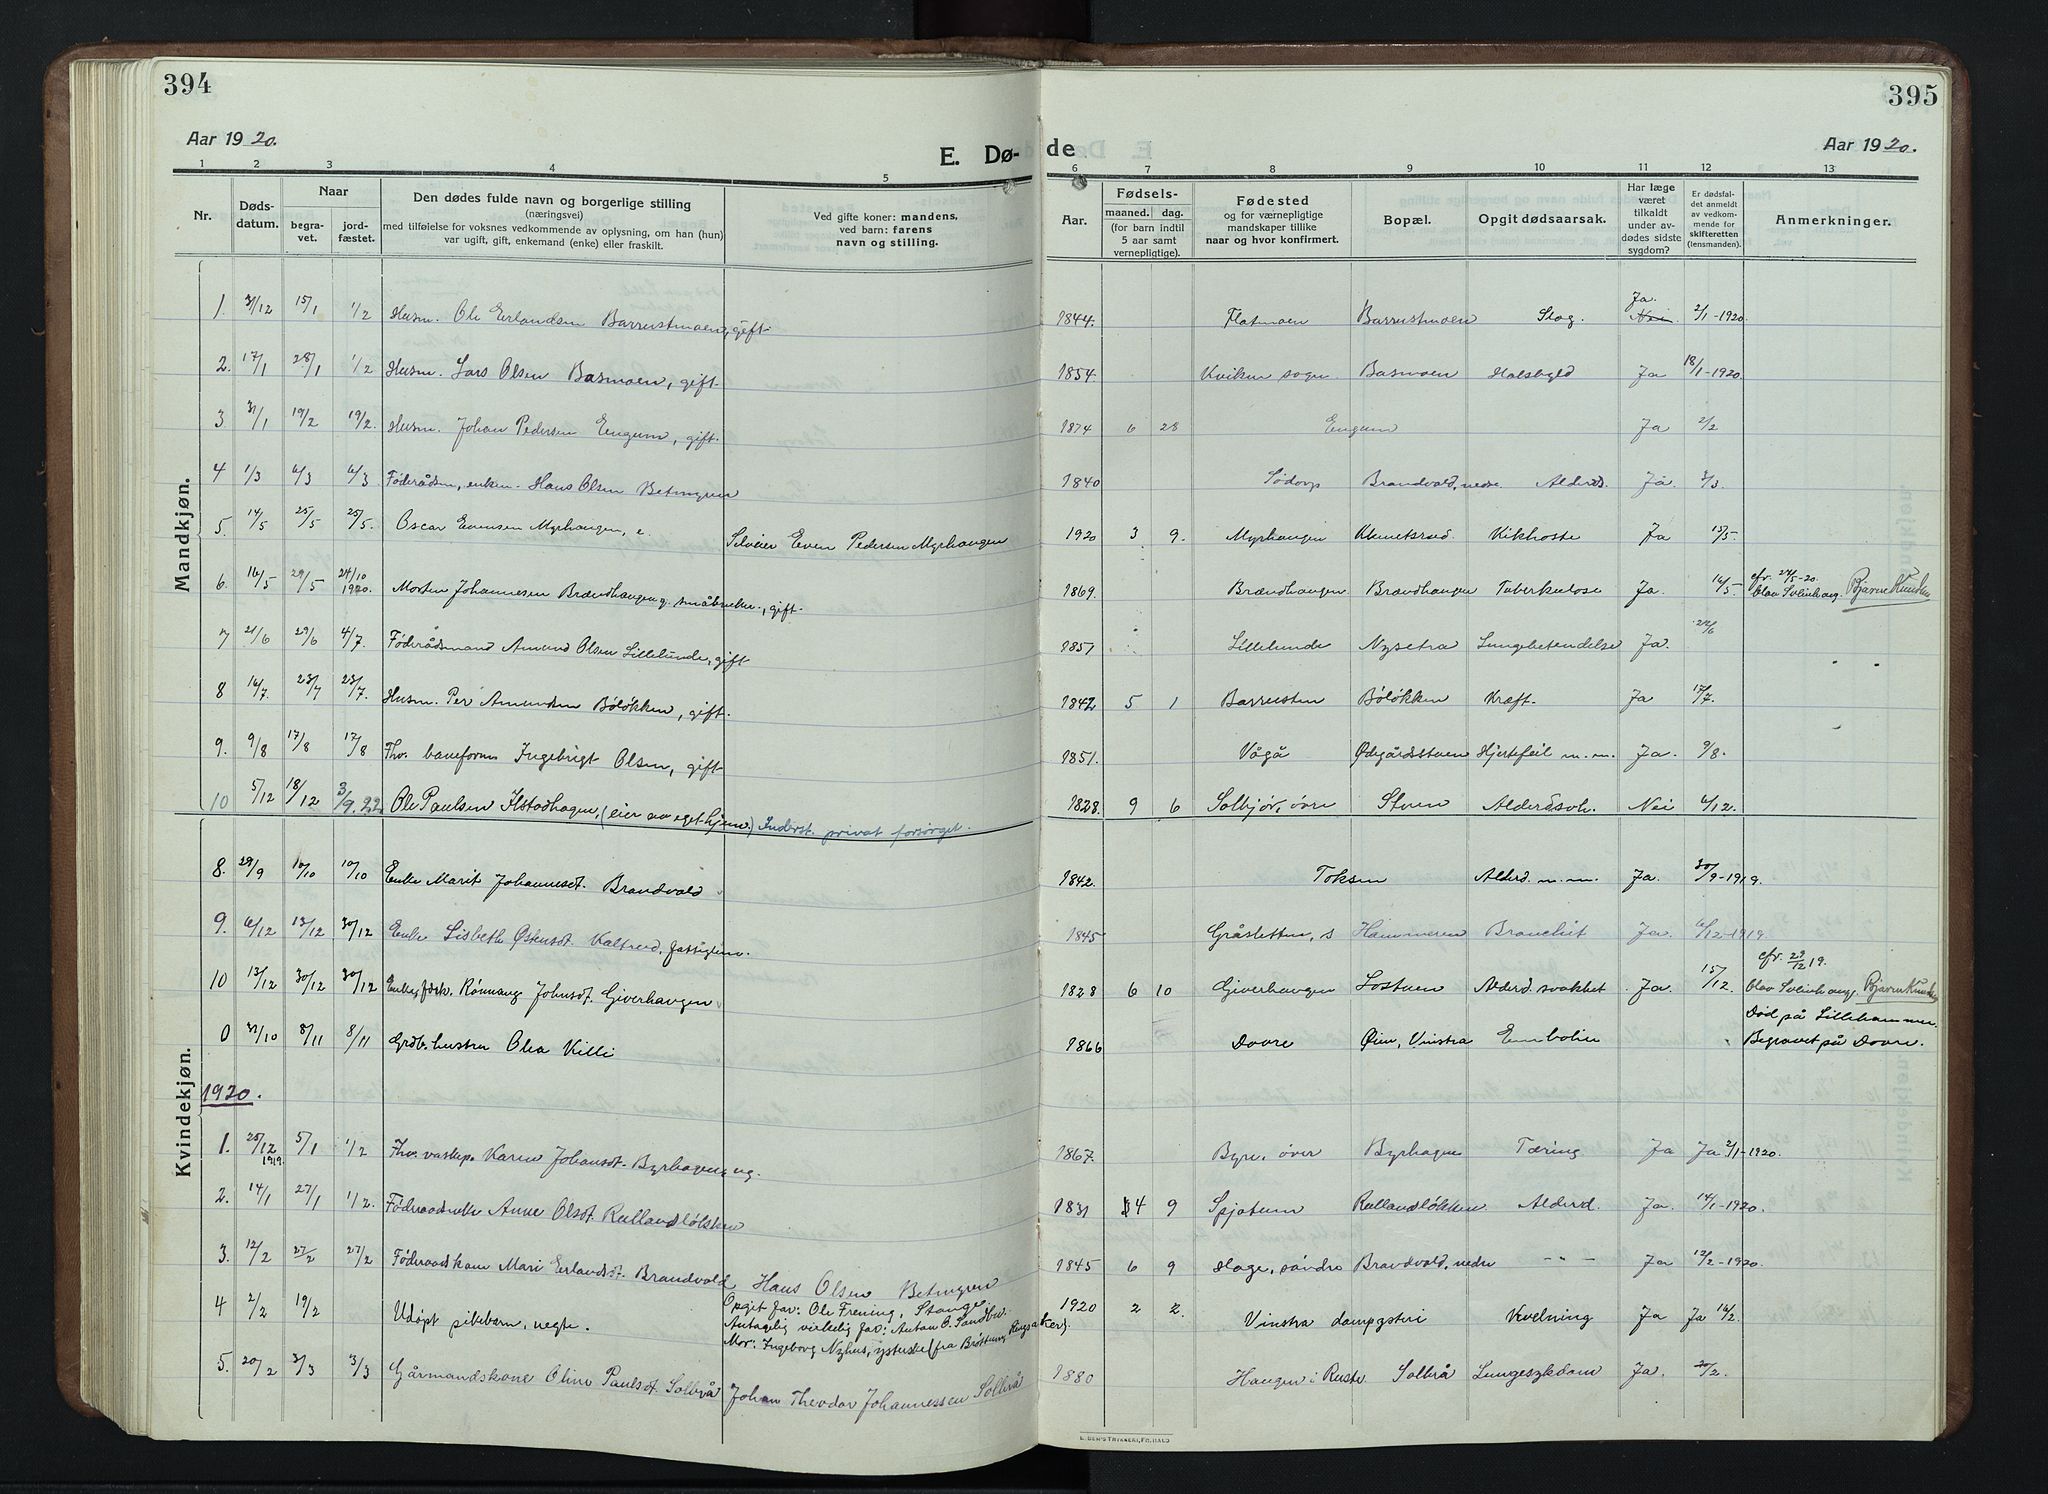 394
395
Aar 1920.
E. Døde
Aar 1920.
1 2 3 4 5 6 7 8 9 10 11 12 13
Nr.
Døds-datum.
Naar
begra-vet.
jord-fæstet.
Den dødes fulde navn og borgerlige stilling
(næringsvei)
med tilføielse for voksnes vedkommende av oplysning, om han (hun)
var ugift, gift, enkemand (enke) eller fraskilt.
Ved gifte koner: mandens,
ved barn: farens
navn og stilling.
Aar.
Fødsels-
maaned. dag.
(for barn indtil
5 aar samt
vernepligtige).
Fødested
og for værnepligtige
mandskaper tillike
naar og hvor konfirmert.
Bopæl.
Opgit dødsaarsak.
Har læge
været
tilkaldt
under av-
dødes sidste
sygdom?
Er dødsfal-
det anmeldt
av vedkom-
mende for
skifteretten
(lensmanden).
Anmerkninger.
Mandkjøn.
1. 31/12 15/1 1/2 Husm. Ole Erlandsen Barrustmoen, gift. 1844. Flatmoen Barrustmoen Slag. Ja. Nei. 2/1-1920.
2. 17/1 28/1 1/2 Husm. Lars Olsen Basmoen, gift. 1854. Kvikne sogn Basmoen Halsbyld Ja 18/1-1920.
3 31/1 19/2 19/2. Husm. Johan Pedersen Engum, gift. 1874 6 28 Engum Ja 2/2
4 1/3 6/3 6/3 Føderådsm, enkem. Hans Olsen Betengren 1840 Sødorp Brandvold, nedre Alderds. Ja. 3/3.
5. 14/5 25/5 25/5. Oscar Evensen Myrhaugen, e. Selveier Even Pedersen Myrhaugen 1920 3 9. Myrhaugen Klemetsrud. Kikhoste Ja 15/5.
6. 16/5 29/5 24/10 1920. Morten Johannesen Brændhaugen, småbruker, gift. 1869. Brændhaugen Brændhaugen Tuberkulose Ja. 16/5. cfr. 27/5-20. Olav Svinhaug. Bjarne Knudsen
7 21/6 29/6 4/7. Føderådsmand Amund Olsen Lillelunde, gift 1851 Lillelunde Nysetra Lungebetendelse Ja. 22/6
8 16/7. 23/7 23/7. Husm. Per Amundsen Bøløkken, gift. 1842 5 1 Barrusten Bøløkken Kræft. Ja 17/7.
9. 9/8 17/8 17/8 Fhv. baneform. Ingebrigt Olsen, gift 1851. Vågå Ødegårdsstuen Hjertefeil m. m. Ja. 9/8.
10 5/12 18/12 3/9.22 Ole Paulsen Ilstadhagen, (eier av eget hjem.) Inderst. privat forsørget. 1828. 9 6 Solbjør, øvre Stuen Alderdsvk. Nei 6/12.
Kvindekjøn.
8. 29/9 10/10 10/10 Enke Marit Johannesdt. Brandvold 1842. Toksen Alderd. m. m. Ja. 30/9-1919.
9. 6/12 13/12 30/12 Enke Lisbeth Østensdt. Kaltrud, fattiglem. 1845 Gråsletten, s Hammeren Bronchit Ja. 6/12-1919.
10 13/12 30/12 30/12 Enke, fdsk. Rønnaug Johnsdt. Giverhaugen 1828 6 10 Giverhaugen Lostuen Alderd. svakhet. Ja. 15/12. cfr. 29/12 19. Olav Svinhaug. Bjarne Knudsen
0 31/10 8/11 8/11 Grdb. hustru Olea Killi 1866 Dovre Øien, Vinstra Emboline Død på Lillehammer. Begravet på Dovre.
1920.
1. 25/12 1919. 5/1 1/2 Fhv. vaskep. Karen Johansdt. Byrhagen, ug. 1867. Byre, øvre Byrhagen Tæring Ja Ja 2/1-1920.
2. 14/1 27/1 1/2. Føderaadsenke Anne Olsdt. Rullandsløkken 1831 4 9 Spjotum Rullandsløkken Alderd. Ja. 14/1-1920.
3. 12/2 27/2 27/2 Føderaadskone Mari Erlandsdt. Brandvold Hans Olsen Betengren 1845 6 9 Hage, søndre Brandvold, nedre -"- Ja 12/2-1920.
4 2/2 19/2 Udøpt pikebarn, uegte. Opgit far: Ole Frening, Stange.
Antagelig virkelig far: Anton O. Sandbu.
Mor: Ingeborg Nyhus, ysterske (fra Brøttum, Ringsaker). 1920 2 2. Vinstra dampysteri Kvelning Ja Ja 16/2.
5. 20/2 3/3 3/3 Gårmandskone Oline Paulsdt. Solbrå Johan Theodor Johannessen Solbrå 1880 Haugen i Ruste Solbrå Lungesykdom Ja. 20/2.
E. SEM'S TRYKKERI, FR.HALD